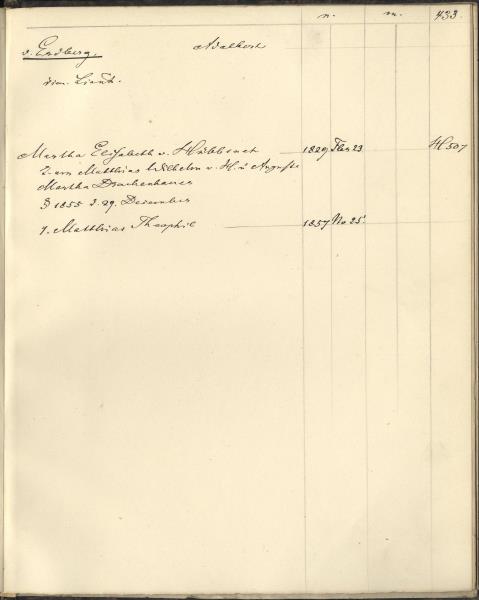 n. m. 433.
v. Erdberg. Adalbert
dim. Lieut.
Martha Elisabeth v. Hübbenet 1829 Fbr 23 H 507
T. von Matthias Wilhelm v. H. u Auguste
Martha Drachenhauer
§ 1855 d. 29. December
1. Matthias Theophil 1857 No 25.